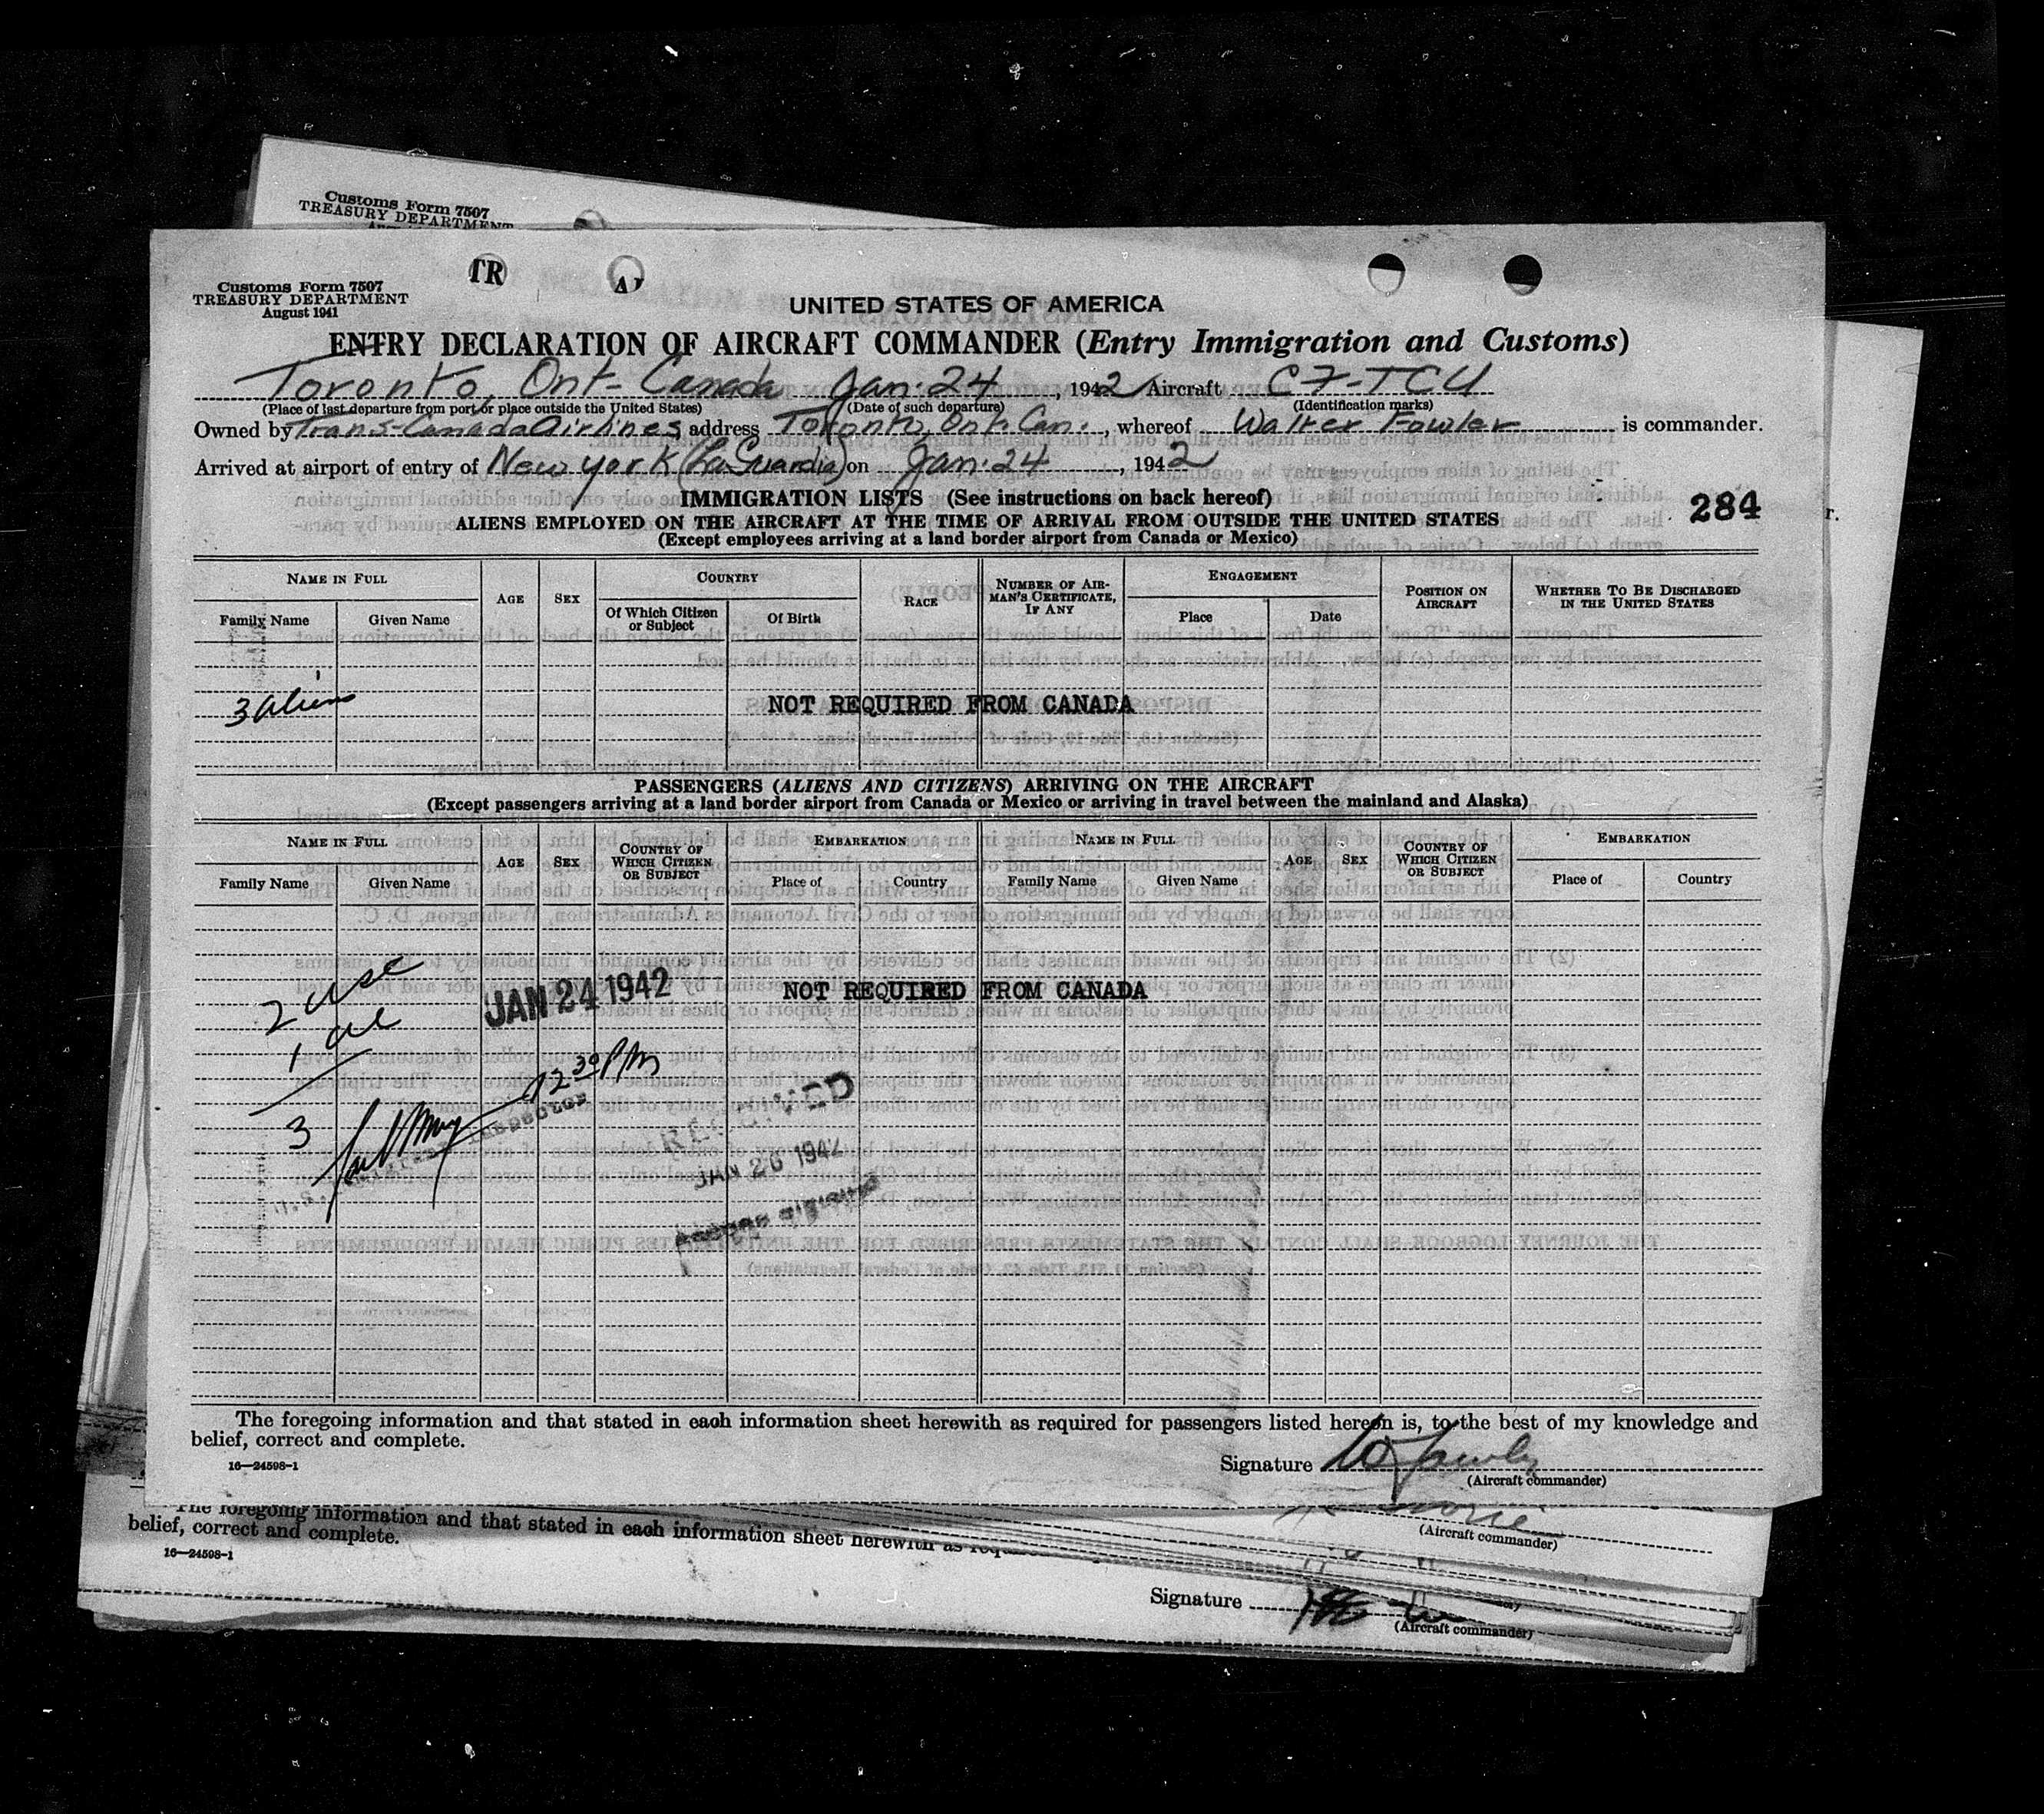 Customs Form 7507
TREASURY DEPARTMENT
Customs Form 7507
TREASURY DEPARTMENT
August 1941
TR
UNITED STATES OF AMERICA
ENTRY DECLARATION OF AIRCRAFT COMMANDER (Entry Immigration and Customs)
Toronto, Ont- Canada Jan. 24, 1942 Aircraft CF-TCU
(Place of last departure from port or place outside the United States) (Date of such departure) (Identification marks)
Owned by Trans-Canada Airlines address Toronto, Ont. Can., whereof Walter Fowler is commander.
Arrived at airport of entry of New York (LaGuardia) on Jan. 24, 1942
IMMIGRATION LISTS (See instructions on back hereof)
284
ALIENS EMPLOYED ON THE AIRCRAFT AT THE TIME OF ARRIVAL FROM OUTSIDE THE UNITED STATES
(Except employees arriving at a land border airport from Canada or Mexico)
NAME IN FULL
Family Name Given Name
AGE SEX
COUNTRY
Of Which Citizen or Subject Of Birth
RACE
NUMBER OF AIRMAN'S CERTIFICATE, IF ANY
ENGAGEMENT
Place Date
POSITION ON AIRCRAFT
WHETHER TO BE DISCHARGED IN THE UNITED STATES
3 alien
NOT REQUIRED FROM CANADA
PASSENGERS (ALIENS AND CITIZENS) ARRIVING ON THE AIRCRAFT
(Except passengers arriving at a land border airport from Canada or Mexico or arriving in travel between the mainland and Alaska)
NAME IN FULL
Family Name Given Name
AGE SEX
COUNTRY OF WHICH CITIZEN OR SUBJECT
EMBARKATION
Place of Country
NAME IN FULL
Family Name Given Name
AGE SEX
COUNTRY OF WHICH CITIZEN OR SUBJECT
EMBARKATION
Place of Country
2 usc
JAN 24 1942
NOT REQUIRED FROM CANADA
1 al
12 30 PM
3
INSPECTOR
RECEIVED
JAN 26 1942
The foregoing information and that stated in each information sheet herewith as required for passengers listed hereon is, to the best of my knowledge and
belief, correct and complete.
16—24598-1
Signature W Fowler
(Aircraft commander)
The foregoing information and that stated in each information sheet herewith as
belief, correct and complete.
(Aircraft commander)
16—24598-1
Signature
(Aircraft commander)